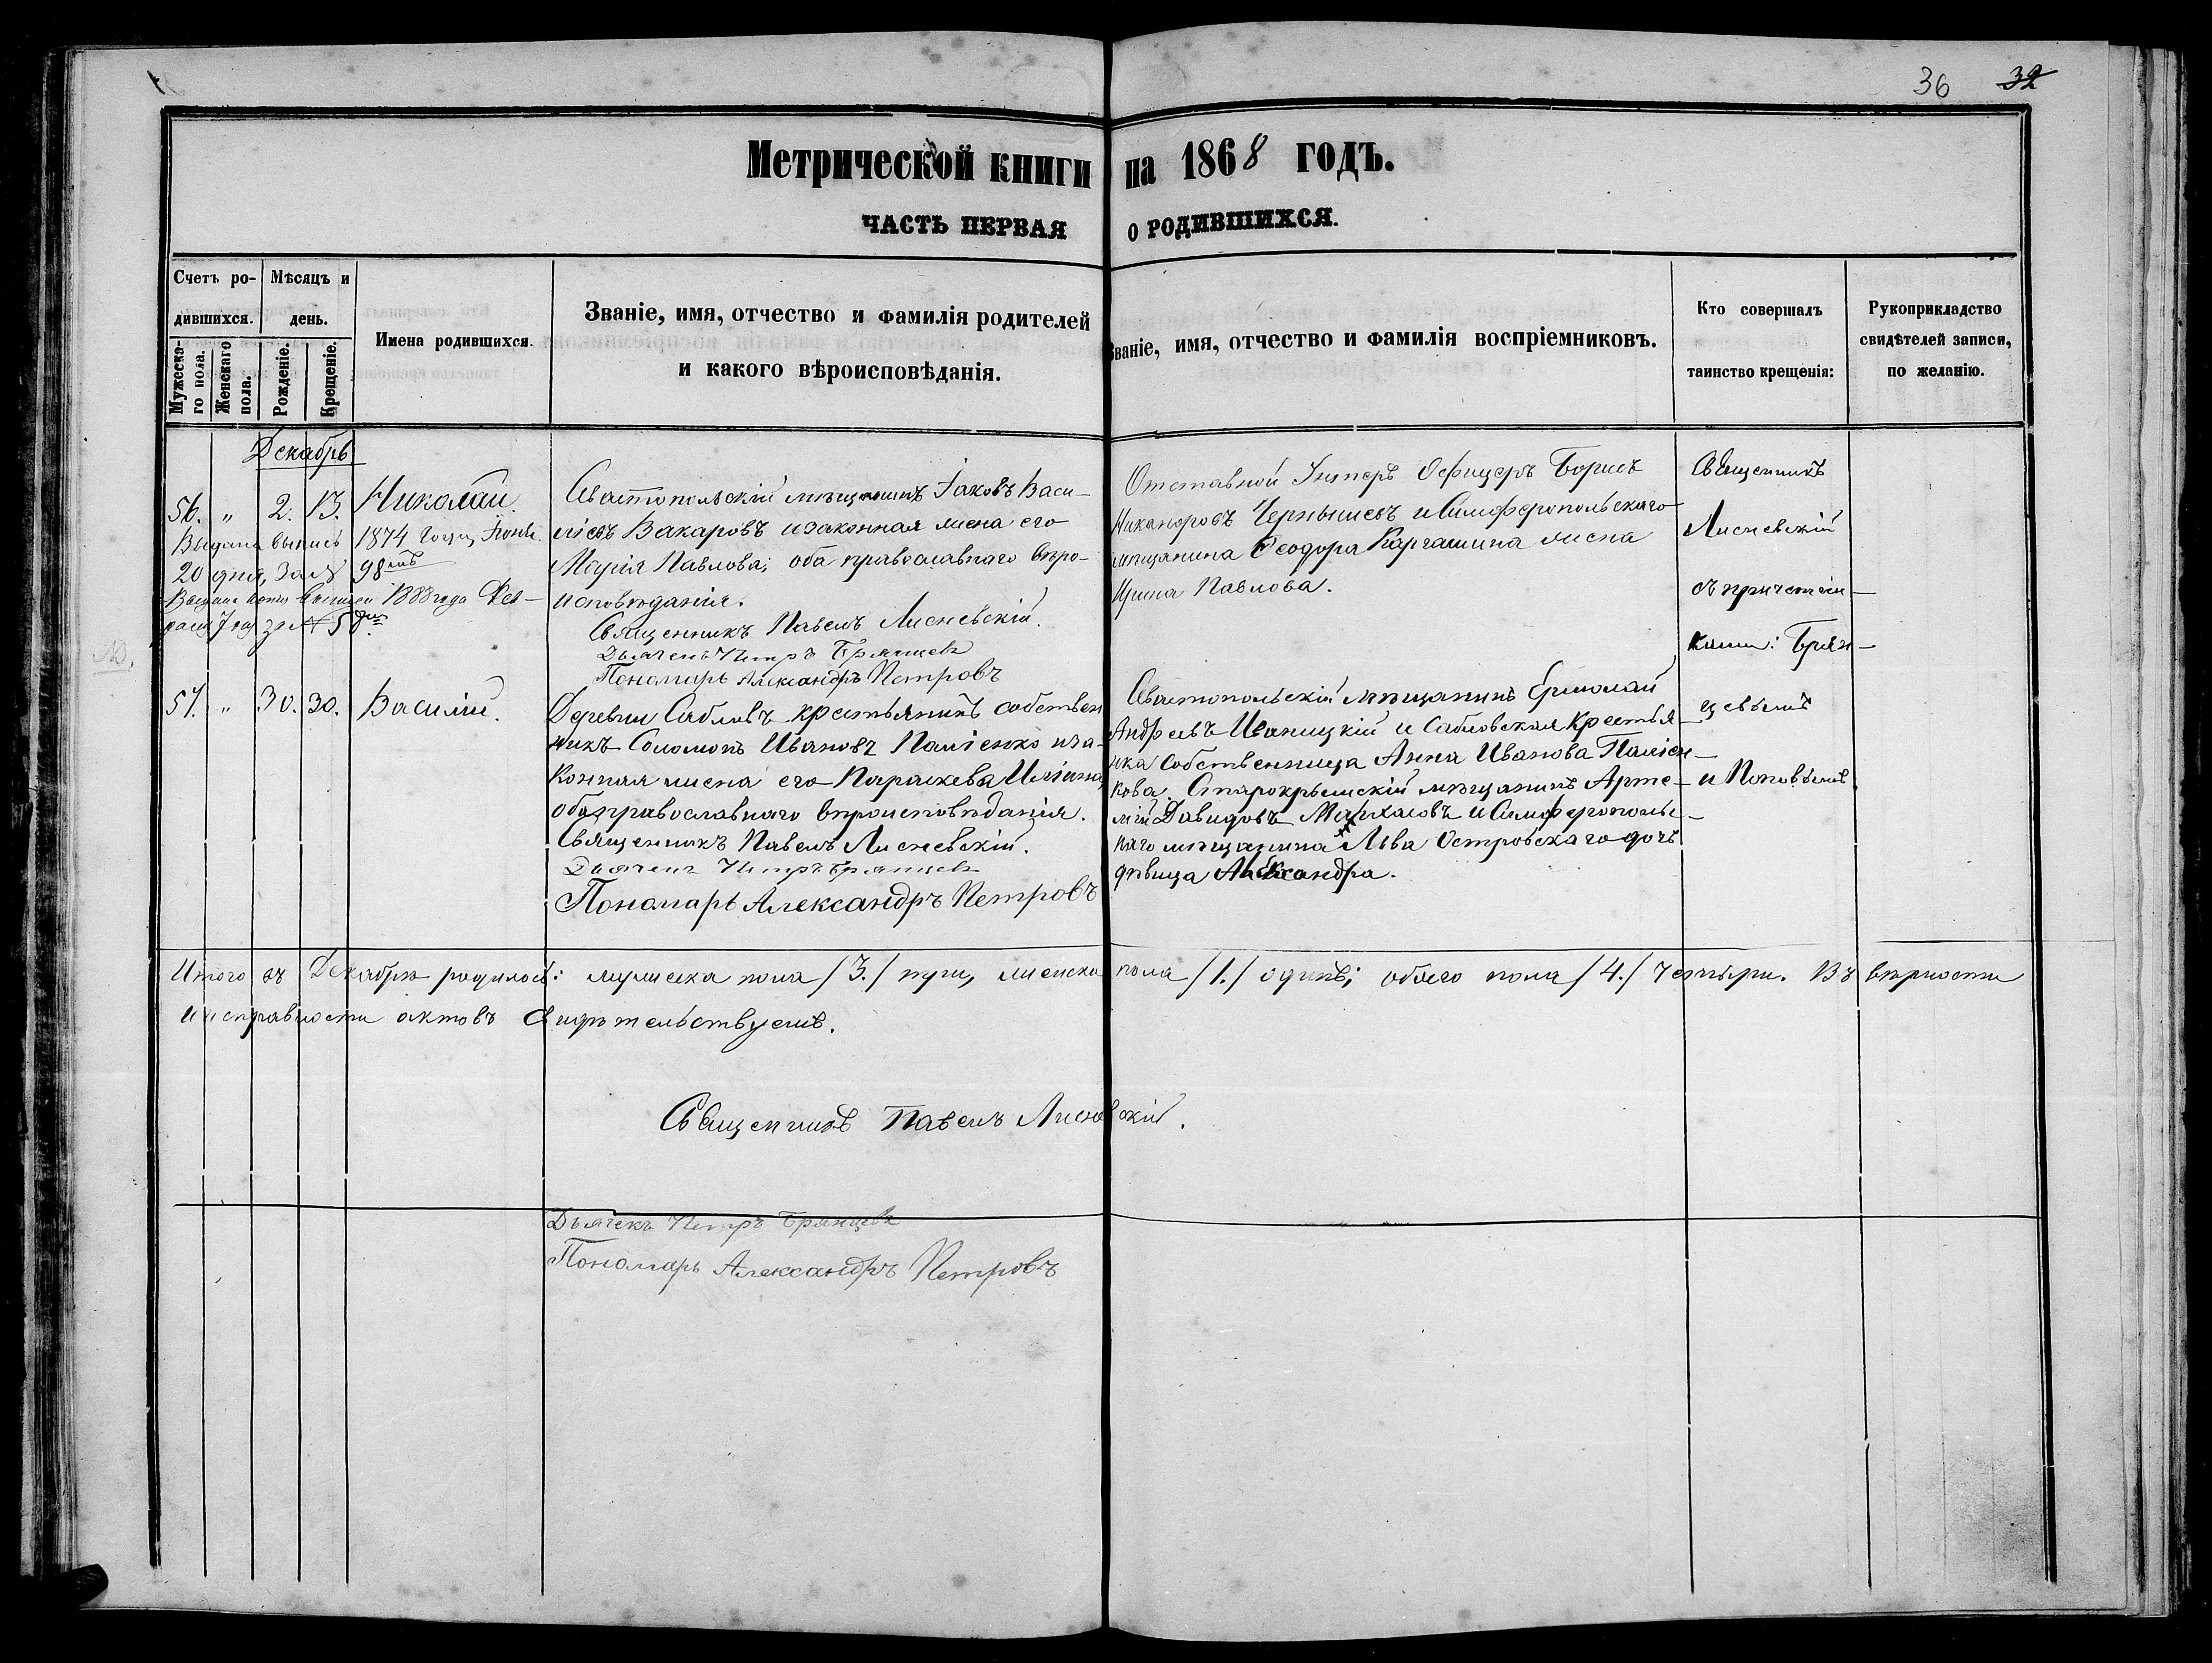 36 32
Метрической книги на 1868 годъ.
ЧАСТЬ ПЕРВАЯ О РОДИВШИХСЯ.
Счетъ ро-
дившихся.
Мужеска-
го пола.
Женскаго
пола.
Мѣсяцъ и
день.
Рожденіе.
Крещеніе.
Имена родившихся.
Званіе, имя, отчество и фамилія родителей
и какого вѣроисповѣданія.
Званіе, имя, отчество и фамилія воспріемниковъ.
Кто совершалъ
таинство крещенія:
Рукоприкладство
свидѣтелей записи,
по желанію.
Декабрь
56. „ 2. 13. Николай.
Выдана выпись 1874 года, Іюня
20 дня, за № 98
Выдана копія выписи 1888 года Фев-
раля 7 дня за № 5
Севастопольскій мѣщанинъ Іаковъ Васи-
ліевъ Вакаровъ и законная жена его
Марія Павлова; оба православнаго вѣро-
исповѣданія.
Священникъ Павелъ Лисневскій.
Дьячекъ Петръ Брянцевъ
Пономарь Александръ Петровъ
Отставной Унтеръ Офицеръ Борисъ
Никаноровъ Чернышевъ и Симферопольскаго
мѣщанина Ѳеодора Каргашина жена
Ирина Павлова.
Священникъ
Лисневскій
съ причетни-
ками: Брян-
цевымъ
и Поповымъ.
57. „ 30. 30. Василій.
Деревни Сабловъ крестьянинъ собствен
никъ Соломонъ Ивановъ Паліенко и за-
конная жена его Параскева Иліина,
оба православнаго вѣроисповѣданія.
Священникъ Павелъ Лисневскій.
Дьячекъ Петръ Брянцевъ
Пономарь Александръ Петровъ
Севастопольскій мѣщанинъ Ермолай
Андреевъ Иваницкій и Сабловская крестья-
нка собственница Анна Иванова Паліен-
кова. Старокрымскій мѣщанинъ Арте-
мій Давидовъ и Симферополь-
скаго мѣщанина Льва Островскаго дочь
дѣвица Александра.
Итого въ Декабрѣ родилось: мужеска пола /3./ три, женска пола /1./ одинъ; обоего пола /4./ четыри. Въ вѣрности
и исправности актовъ свидѣтельствуемъ.
Священникъ Павелъ Лисневскій.
Дьячекъ Петръ Брянцевъ
Пономарь Александръ Петровъ